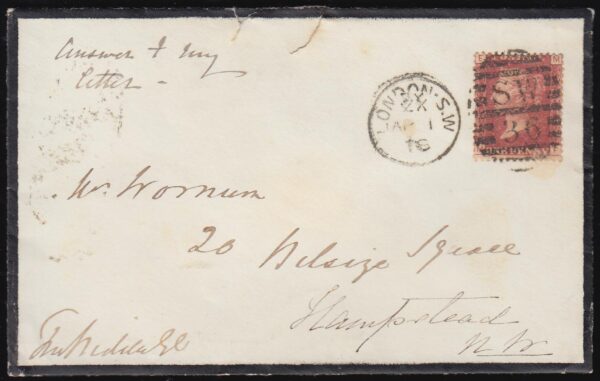 Answer to my
letter -
LONDON · S.W
ZX
AP 1
76
E M
SW
36
Mr. Wornum
20 Belsize Square
Hampstead
N.W